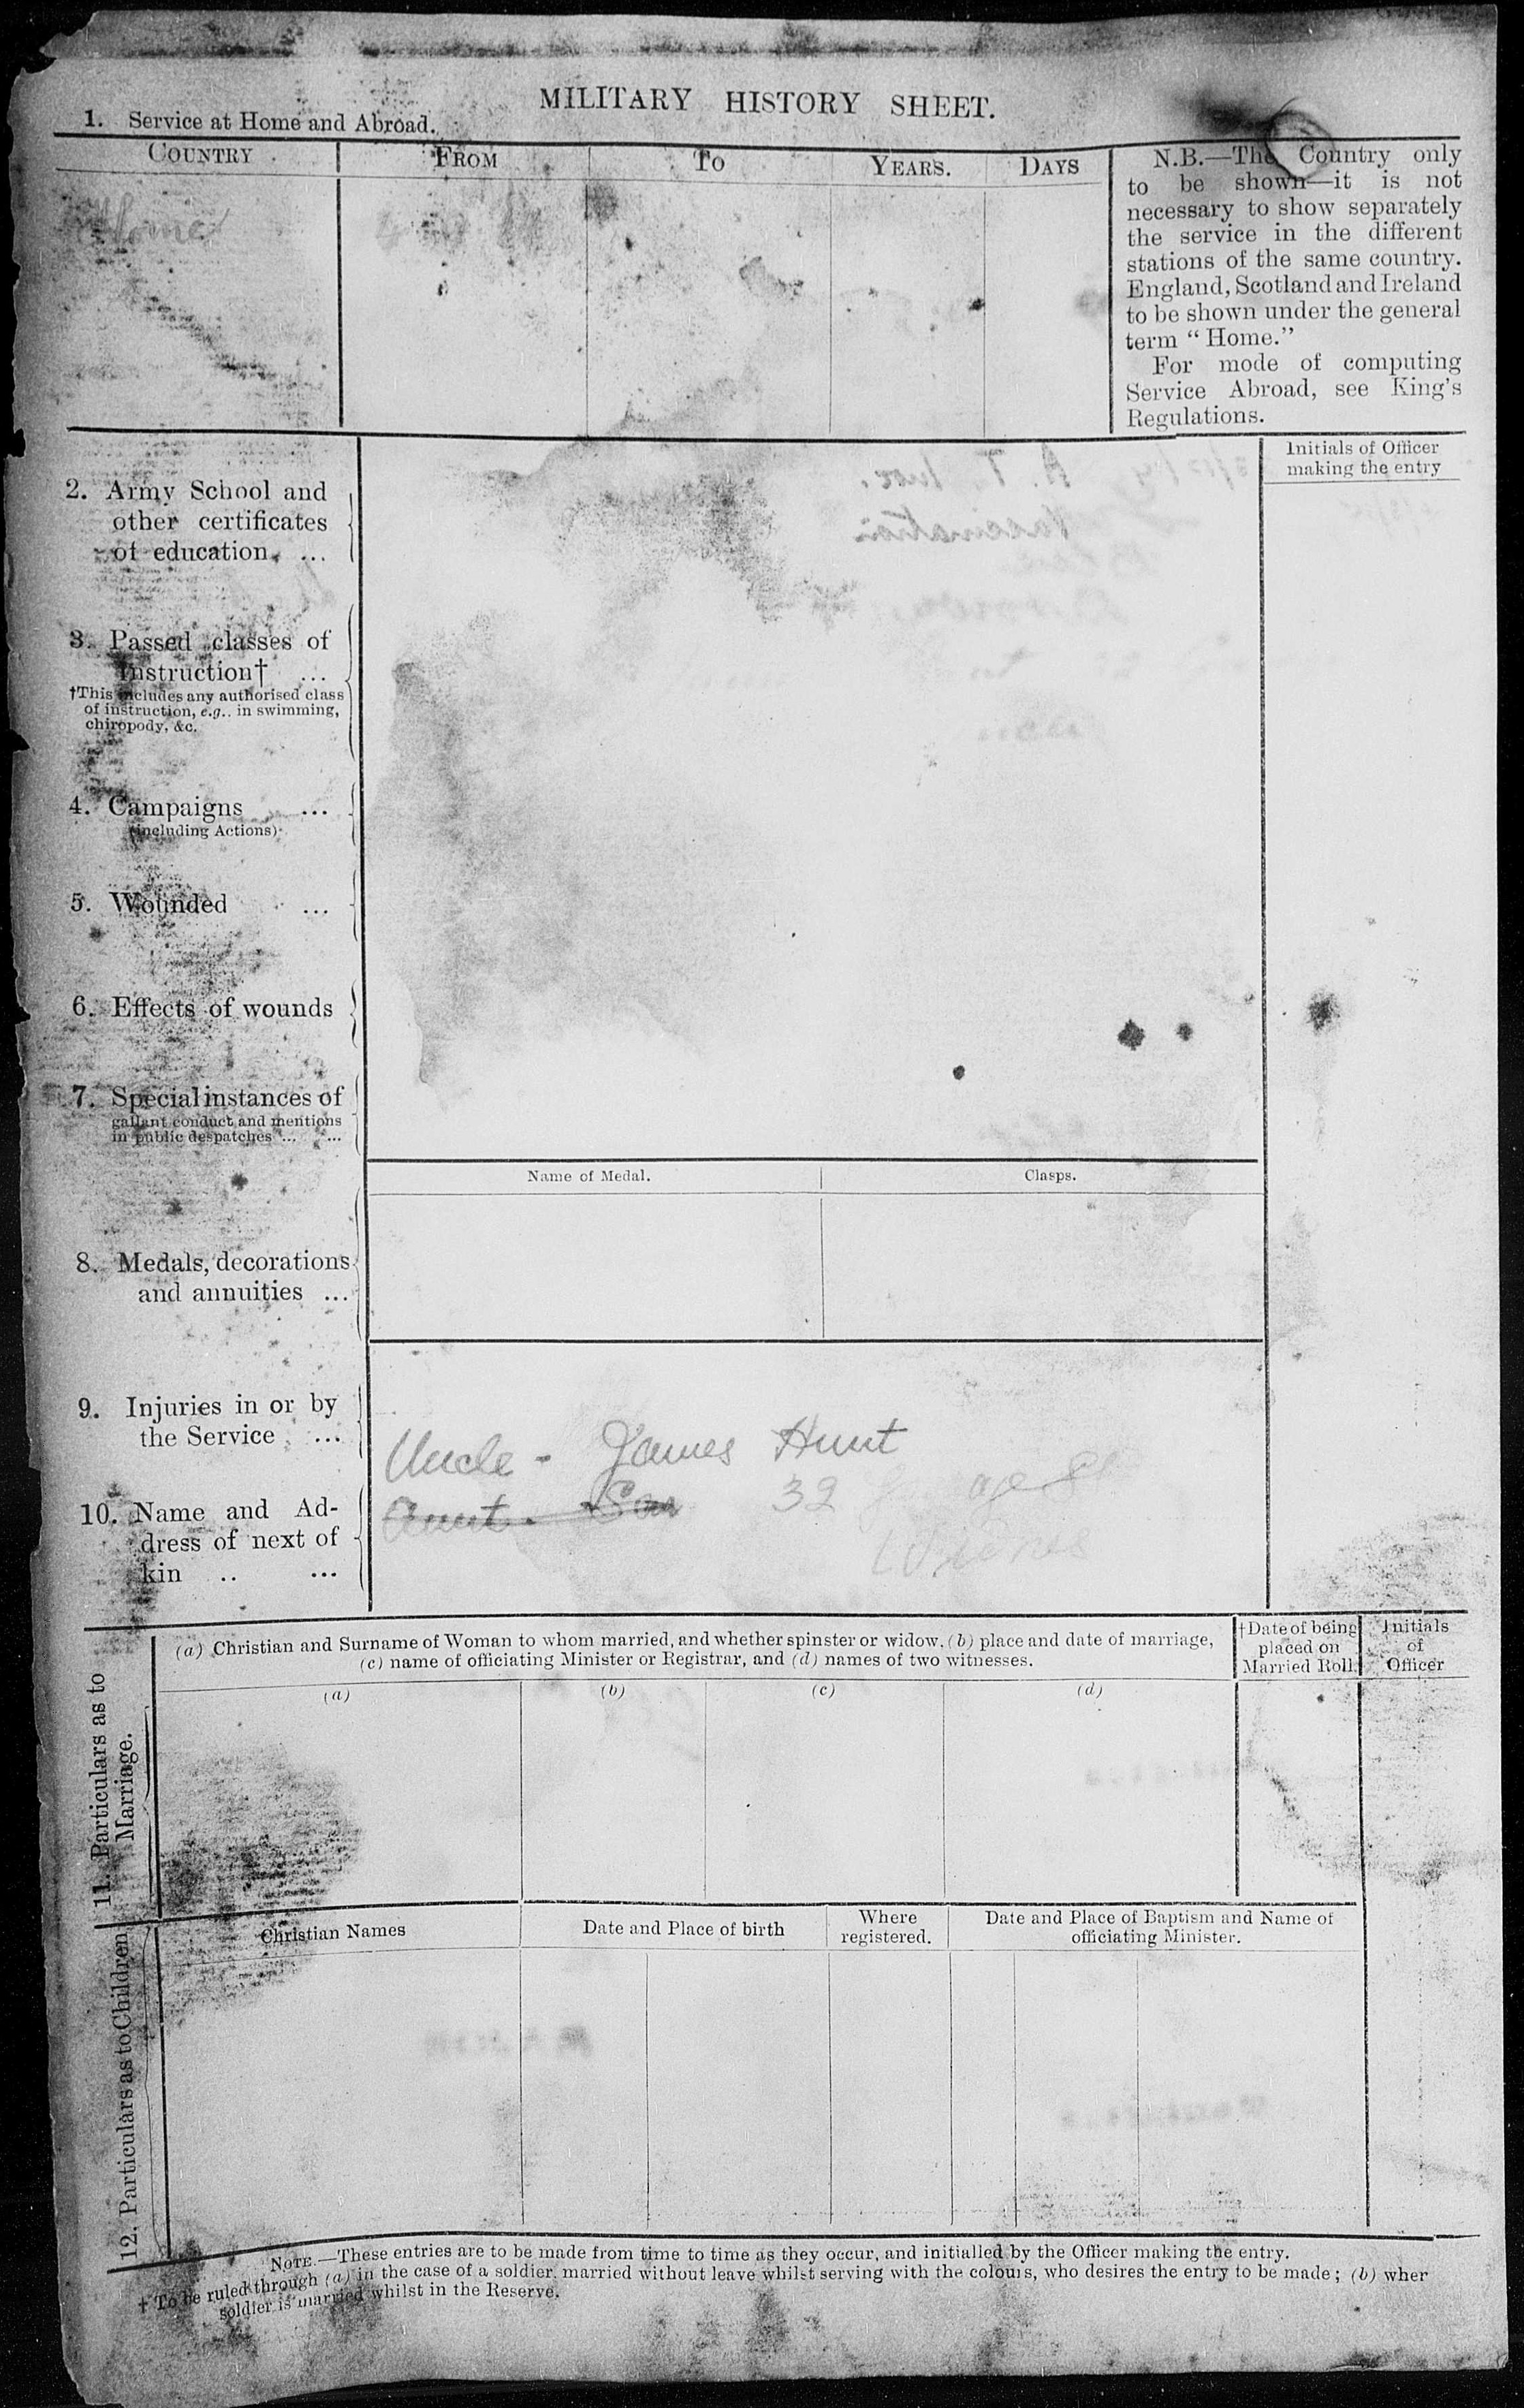 MILITARY HISTORY SHEET.
1. Service at Home and Abroad.
COUNTRY FROM TO YEARS. DAYS
Home
N.B.—The Country only
to be shown—it is not
necessary to show separately
the service in the different
stations of the same country.
England, Scotland and Ireland
to be shown under the general
term “Home.”
For mode of computing
Service Abroad, see King's
Regulations.
Initials of Officer
making the entry
2. Army School and
other certificates
of education. ...
3. Passed classes of
Instruction† ...
†This includes any authorised class
of instruction, e.g.. in swimming,
chiropody, &c.
4. Campaigns ...
(including Actions)
5. Wounded ...
6. Effects of wounds
7. Special instances of
gallant conduct and mentions
in public despatches ... ...
Name of Medal. Clasps.
8. Medals, decorations
and annuities ...
9. Injuries in or by
the Service ...
Uncle - James Hunt
Aunt. Sar 32
10. Name and Ad-
dress of next of
kin .. ...
11. Particulars as to
Marriage.
(a) Christian and Surname of Woman to whom married, and whether spinster or widow. (b) place and date of marriage,
(c) name of officiating Minister or Registrar, and (d) names of two witnesses.
†Date of being
placed on
Married Roll.
Initials
of
Officer
(a) (b) (c) (d)
12. Particulars as to Children.
Christian Names
Date and Place of birth
Where
registered.
Date and Place of Baptism and Name of
officiating Minister.
NOTE.—These entries are to be made from time to time as they occur, and initialled by the Officer making the entry.
† To be ruled through (a) in the case of a soldier. married without leave whilst serving with the colours, who desires the entry to be made; (b) wher
soldier is married whilst in the Reserve.